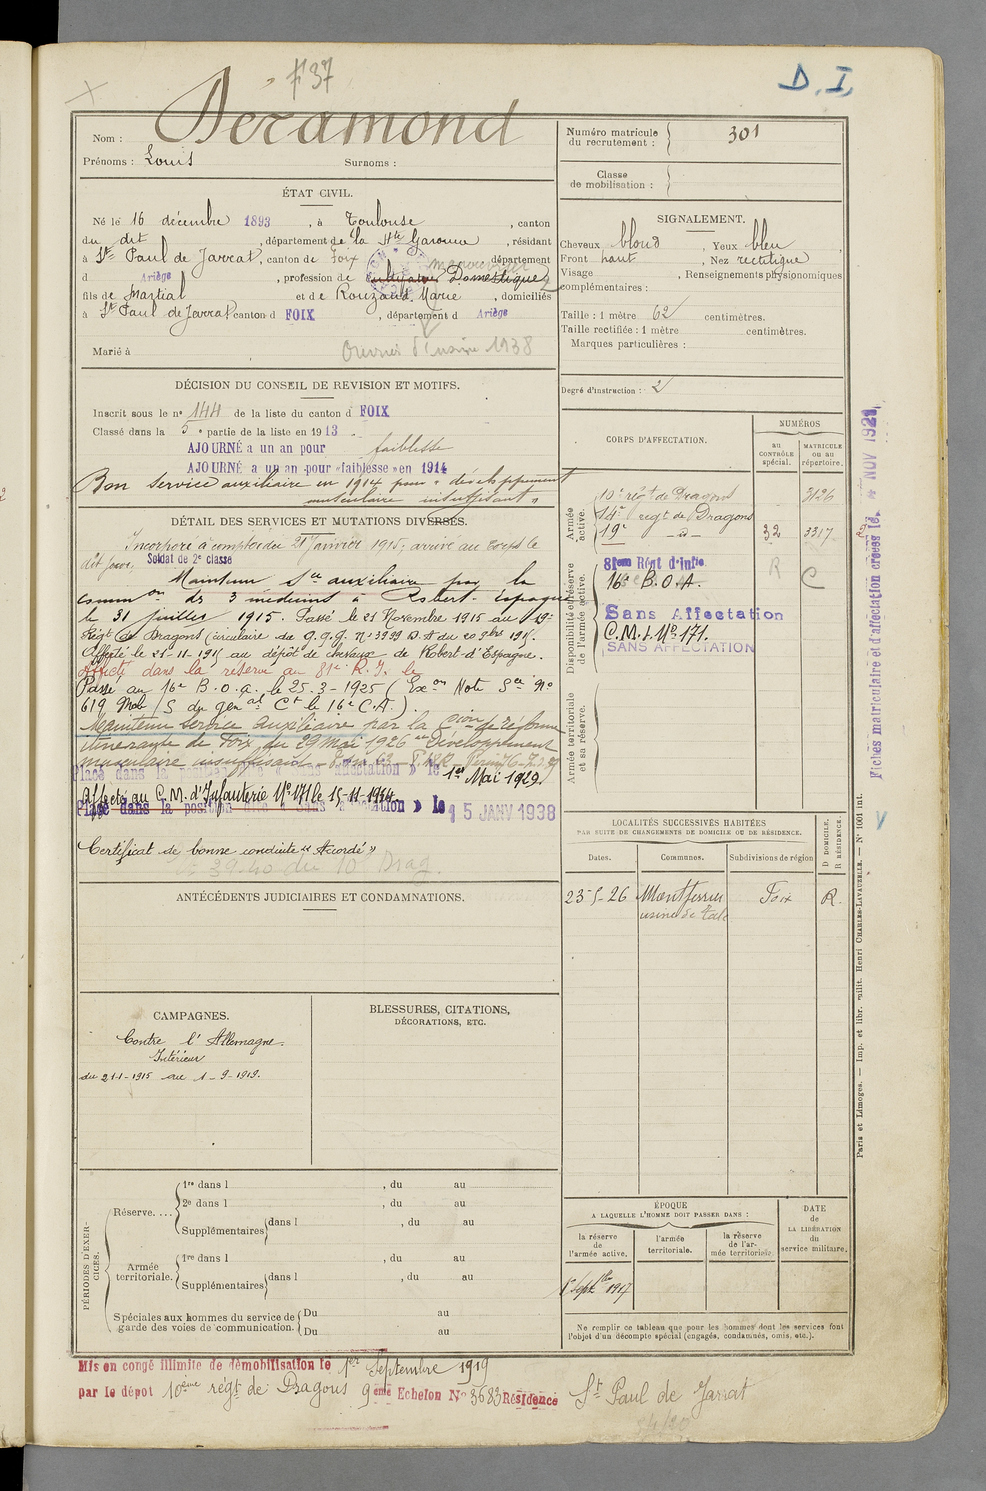 F 37
D. I.
Nom : Deramond
Prénoms : Louis Surnoms :
Numéro matricule du recrutement : 301
Classe de mobilisation :
ÉTAT CIVIL.
Né le 16 décembre 1893, à Toulouse, canton
du dit, département de la Hte Garonne, résidant
à St Paul de Jarrat, canton de Foix département
d Ariège, profession de cultivateur Domestique
manoeuvrier
fils de Martial et de Rouzaud, Marie, domiciliés
à St Paul de Jarrat canton d FOIX, département d Ariège
Marié à
Ouvrier d'usine 1938
SIGNALEMENT.
Cheveux blond, Yeux bleu
Front haut, Nez rectiligne
Visage , Renseignements physionomiques
complémentaires :
Taille : 1 mètre 62 centimètres.
Taille rectifiée : 1 mètre centimètres.
Marques particulières :
Degré d'instruction : 2
DÉCISION DU CONSEIL DE REVISION ET MOTIFS.
Inscrit sous le n° 144 de la liste du canton d FOIX
Classé dans la 5e partie de la liste en 1913.
AJOURNÉ a un an pour faiblesse
AJOURNÉ a un an pour «faiblesse» en 1914
Bon service auxiliaire en 1914 pour « développement
musculaire insuffisant »
DÉTAIL DES SERVICES ET MUTATIONS DIVERSES.
Incorporé à compter du 21 Janvier 1915; arrivé au corps le
dit jour, Soldat de 2e classe
Maintenu sce auxiliaire par la
common des 3 médecins à Robert-Espagne
le 31 juillet 1915. Passé le 21 Novembre 1915 au 19e
Régt de Dragons (circulaire de G.Q.G. n° 3999 D.A du 20 9bre 1915.
Affecté le 21-11-1915 au dépôt de chevaux de Robert-d'Espagne.
Affecté dans la réserve au 81e R.I. le
Passé au 16e B.O.A. le 25-3-1925 (Exon Note Sce N°
619 Mob/S du génal Ct le 16e C.A.).
Maintenu service auxiliaire par la Cion de réforme
itinérante de Foix du 29 Mai 1926 "Développement
musculaire insuffisant
Placé dans la position dite « Sans affectation » le 1er Mai 1929.
Affecté au C.M. d'Infanterie N° 171 le 15-11-1934
Placé dans la position dite « Sans affectation » le 15 JANV 1938
Certificat de bonne conduite "Accordé"
du 10e Drag.
CORPS D'AFFECTATION.
NUMÉROS
au CONTRÔLE spécial.
MATRICULE ou au répertoire.
Armée active.
10e régt de Dragons 3126
14e régt de Dragons
19e -d°- 32 3317
Disponibilité et réserve de l'armée active.
81em Régt d'Infie R C
16e B.O.A.
Sans Affectation
C.M.I. N° 171.
SANS AFFECTATION
Armée territoriale et sa réserve.
Fiches matriculaire et d'affectation créées le 4 NOV 1921
LOCALITÉS SUCCESSIVES HABITÉES
PAR SUITE DE CHANGEMENTS DE DOMICILE OU DE RÉSIDENCE.
Dates. Communes. Subdivisions de région
D DOMICILE. R RÉSIDENCE.
23-5-26 Montferrier Foix R.
usine de talc
ANTÉCÉDENTS JUDICIAIRES ET CONDAMNATIONS.
CAMPAGNES.
Contre l'Allemagne.
Intérieur
du 21-1-1915 au 1-9-1919.
BLESSURES, CITATIONS,
DÉCORATIONS, ETC.
PÉRIODES D'EXERCICES.
Réserve....
1re dans l , du au
2e dans l , du au
Supplémentaires dans l , du au
Armée territoriale.
1re dans l , du au
Supplémentaires dans l , du au
Spéciales aux hommes du service de garde des voies de communication.
Du au
Du au
ÉPOQUE
A LAQUELLE L'HOMME DOIT PASSER DANS :
la réserve de l'armée active.
l'armée territoriale.
la réserve de l'armée territoriale.
DATE de LA LIBÉRATION du service militaire.
1er Septbre 1917
Ne remplir ce tableau que pour les hommes dont les services font
l'objet d'un décompte spécial (engagés, condamnés, omis, etc.).
Paris et Limoges. — Imp. et libr. milit. Henri CHARLES-LAVAUZELLE. — N° 1001 int.
Mis en congé illimité de démobilisation le 1er Septembre 1919
par le dépot 10ème régt de Dragons 9eme Echelon N° 3683 Résidence St Paul de Jarrat